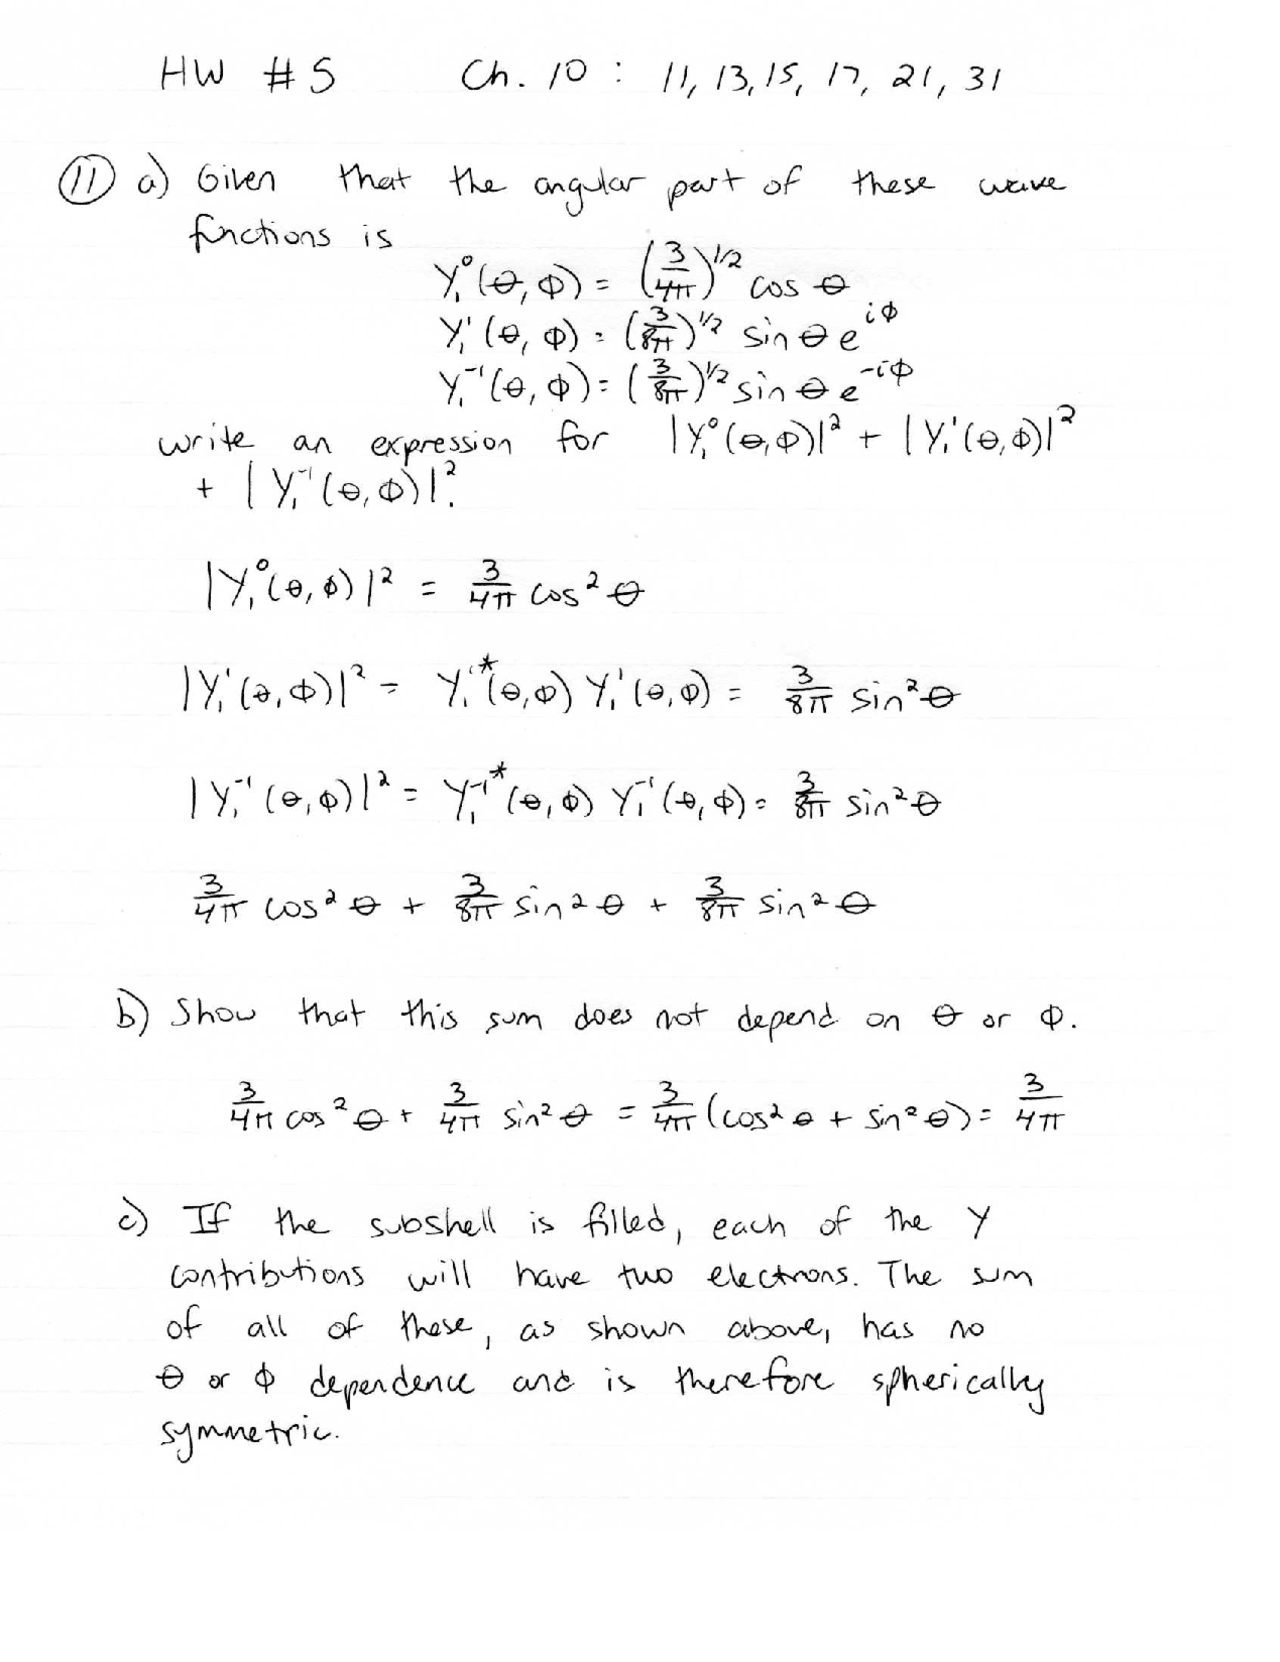 HW #5 Ch. 10 : 11, 13, 15, 17, 21, 31
⑪ a) Given that the angular part of these wave
functions is
Y₁⁰(θ, φ) = (3/4π)^1/2 cos θ
Y₁¹(θ, φ) = (3/8π)^1/2 sin θ e^iφ
Y₁⁻¹(θ, φ) = (3/8π)^1/2 sin θ e^-iφ
write an expression for |Y₁⁰(θ,φ)|² + |Y₁¹(θ,φ)|²
+ |Y₁⁻¹(θ,φ)|².
|Y₁⁰(θ,φ)|² = 3/4π cos²θ
|Y₁¹(θ,φ)|² = Y₁¹*(θ,φ) Y₁¹(θ,φ) = 3/8π sin²θ
|Y₁⁻¹(θ,φ)|² = Y₁⁻¹*(θ,φ) Y₁⁻¹(θ,φ) = 3/8π sin²θ
3/4π cos²θ + 3/8π sin²θ + 3/8π sin²θ
b) Show that this sum does not depend on θ or φ.
3/4π cos²θ + 3/4π sin²θ = 3/4π (cos²θ + sin²θ) = 3/4π
c) If the subshell is filled, each of the Y
contributions will have two electrons. The sum
of all of these, as shown above, has no
θ or φ dependence and is therefore spherically
symmetric.